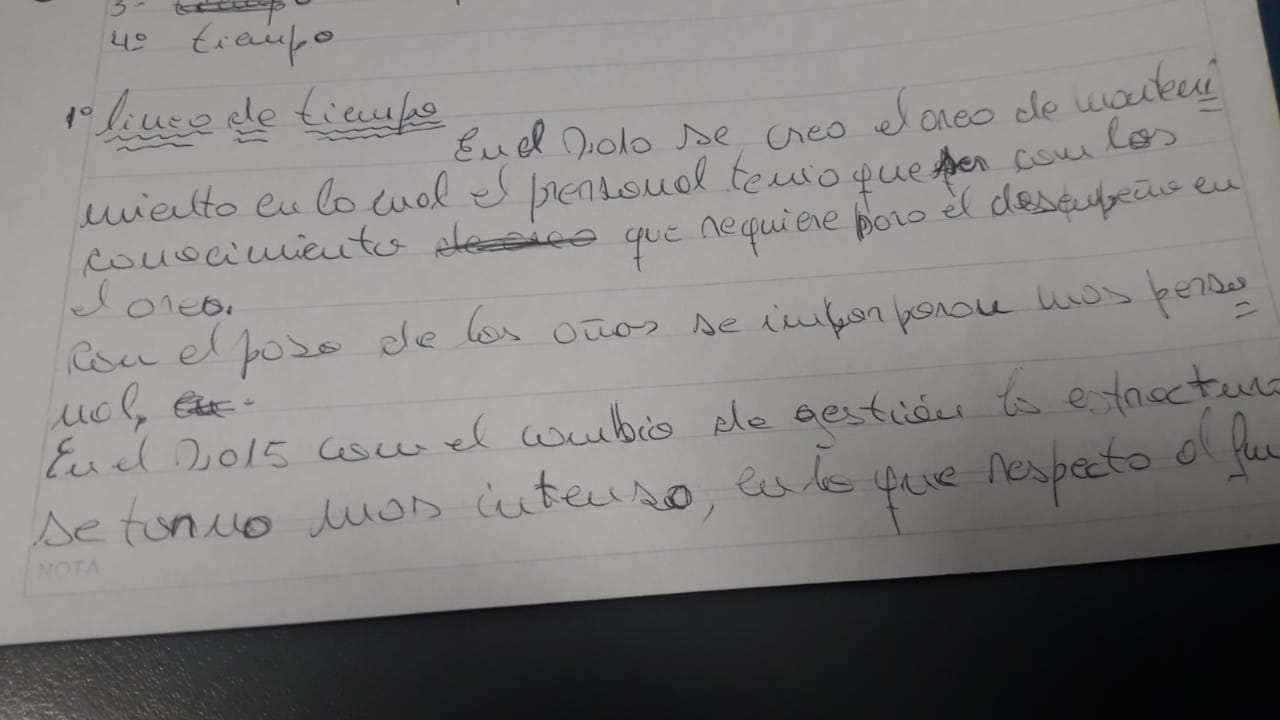 3-
4º tiempo
1º linea de tiempo
En el 2.010 se creo el area de manteni
miento en lo cual el prensonal tenia que ser con los
conocimiento que requiere para el desempeño en
el area.
Con el paso de los años se imporporan mas perso
nal,
En el 2.015 con el cambio de gestión la estructura
se torno mas intensa, en lo que respecto al fun
NOTA